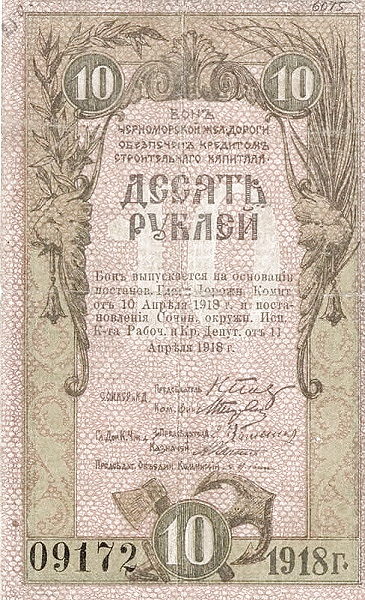 6075
10 10
БОНЪ
ЧЕРНОМОРСКОЙ ЖЕЛ. ДОРОГИ
ОБЕЗПЕЧЕН КРЕДИТОМЪ
СТРОИТЕЛЬНАГО КАПИТАЛА
ДЕСЯТЬ
РУБЛЕЙ
Бонъ выпускается на основаніи
постанов. Главн. Дорожн. Комит.
отъ 10 Апрѣля 1918 г. и поста-
новленія Сочин. окружн. Исп.
К-та Рабоч. и Кр. Депут. отъ 11
Апрѣля 1918 г.
Предсѣдатель
Ком. Фин.
Гл. Дор. К. Ч. ж. д.
Казначей
Председат.
10
09172 1918 г.